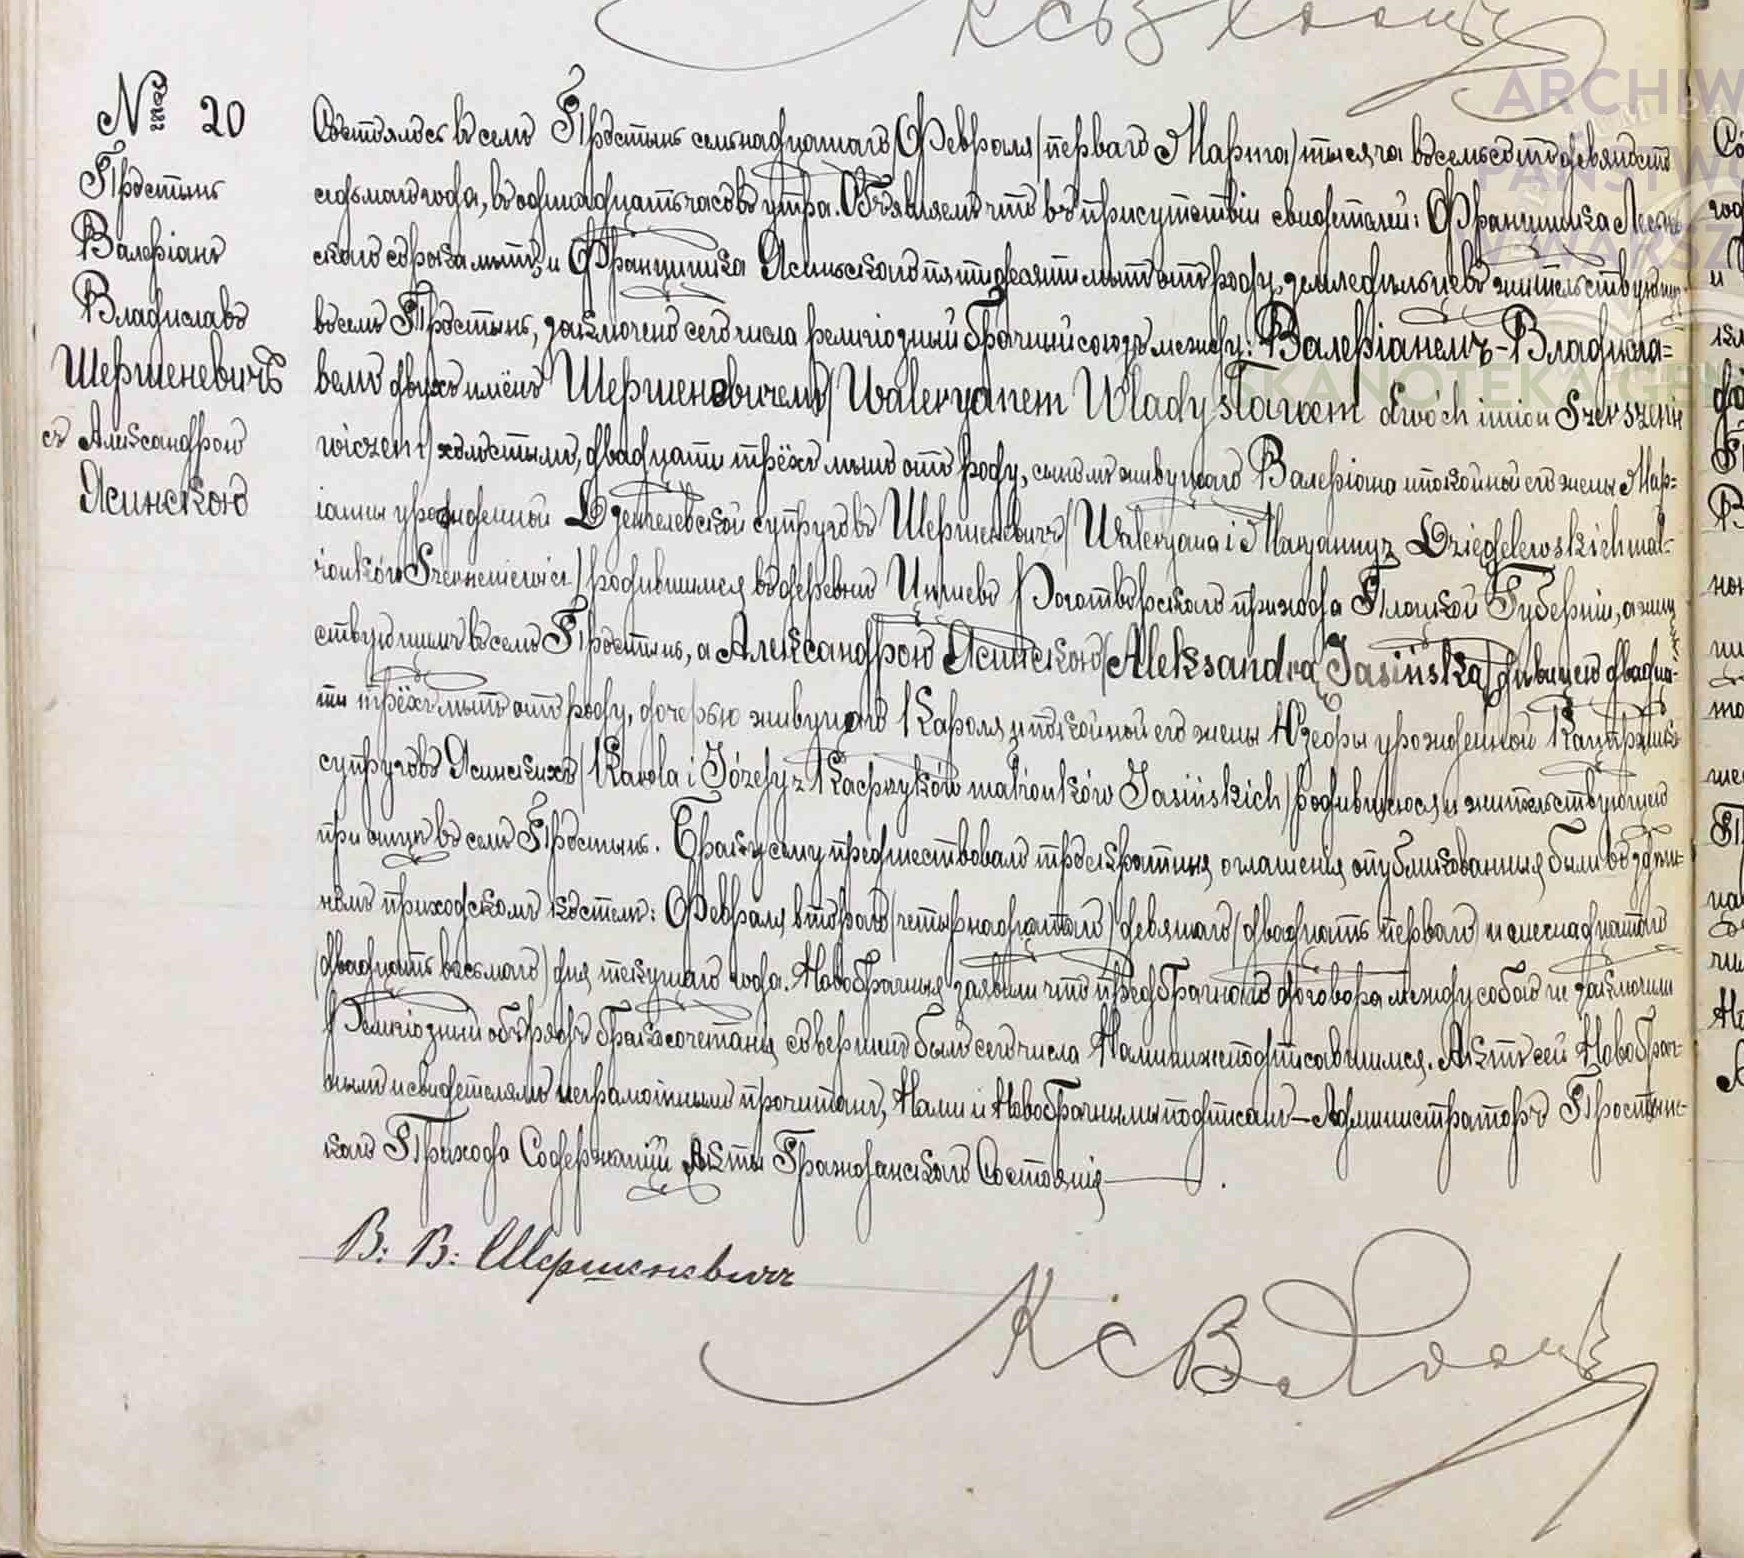 № 20
Простынь
Валеріанъ
Владиславъ
Шершеневичъ
съ Александрою
Ясинскою
Состоялось въ селѣ Простынь семьнадцатаго Февраля (перваго Марта) тысяча восемьсотъ девяносто
седьмаго года, въ одинадцать часовъ утра. Объявляемъ что въ присутствіи свидѣтелей: Францишка
скаго сорока лѣтъ, и Францишка Ясиньскаго пятидесяти лѣтъ отъ роду, земледѣльцевъ жительствующихъ
въ селѣ Простынь, заключенъ сего числа религіозный брачный союзъ между: Валеріаномъ-Владисла=
вомъ двухъ имёнъ Шершеневичемъ (Waleryanem Władysławem dwóch imion Szersznie
wiczem) холостымъ, двадцати трёхъ лѣтъ отъ роду, сыномъ живущаго Валеріана и покойной его жены Мар=
іанны урожденной Дзенгелевской супруговъ Шершеневичъ (Waleryana i Maryanny z Dzięgelewskich mał=
żonków) родившимся въ деревнѣ прихода Плоцкой Губерніи, а жи
ствующимъ въ селѣ Простынь, а Александрою Ясинскою (Aleksandrą Jasińską) дѣвицею двадца-
ти трёхъ лѣтъ отъ роду, дочерью живущаго Кароля и покойной его жены Юзефы урожденной
супруговъ Ясинскихъ (Karola i Józefy z Kacprzyków małżonków Jasińskich) родившеюся и жительствующею
при отцѣ въ селѣ Простынь. Браку сему предшествовали троекратныя оглашенія опубликованныя были въ здѣш=
немъ приходскомъ костелѣ: Февраля втораго (четырнадцатаго) девятаго (двадцать перваго) и шестнадцатаго
(двадцать восьмаго) дня текущаго года. Новобрачныя заявили что предбрачнаго договора между собою не заключили
Религіозный обрядъ бракосочетанія совершенъ былъ сего числа Нами нижеподписавшимся. Актъ сей Новобрач-
нымъ и свидѣтелямъ неграмотнымъ прочитанъ, Нами и Новобрачнымъ подписанъ — Администраторъ Простынс-
каго Прихода Содержащій Акты Гражданскаго Состоянія
В: В: Шершеневичъ
Кс В